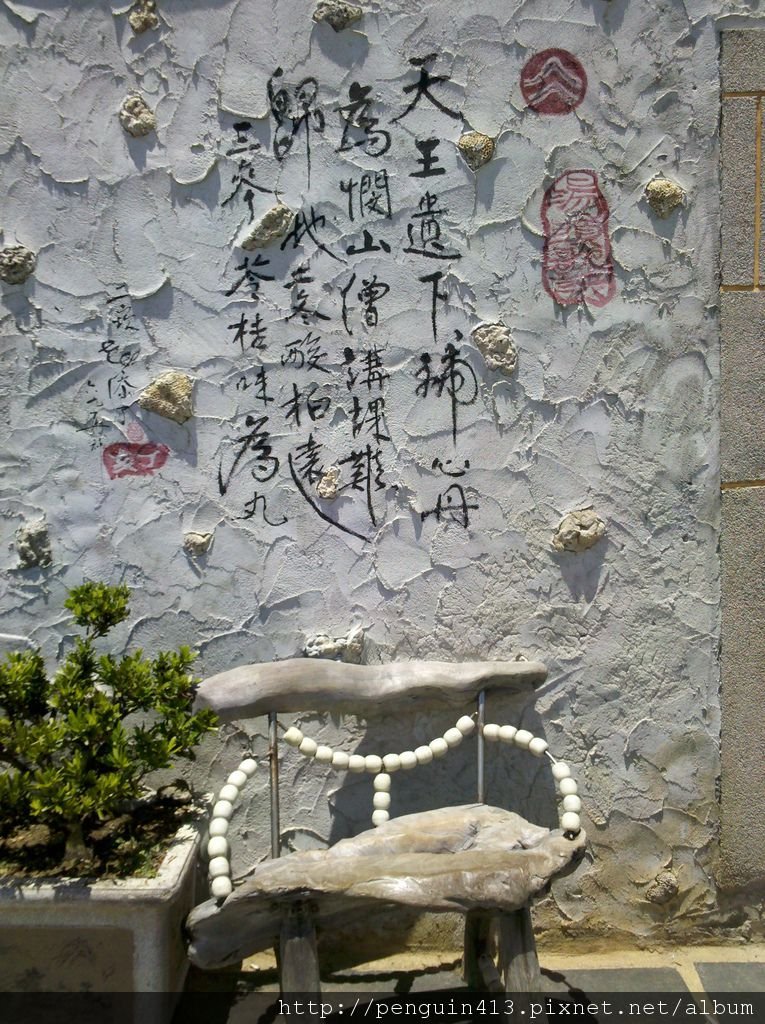 天王遺下補心丹
為憫山僧講課難
歸地二冬酸柏遠
三參苓桔味為丸
http://penguin413.pixnet.net/album